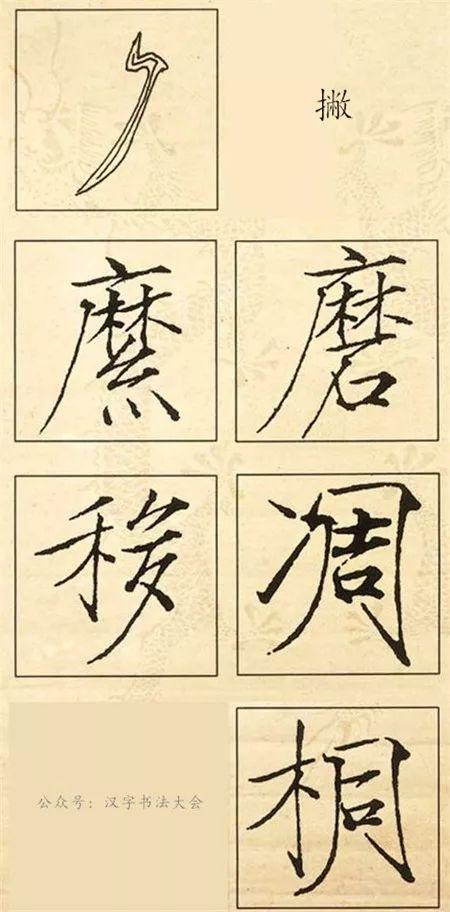 撇
縻 磨
移 凋
公众号：汉字书法大会 桐